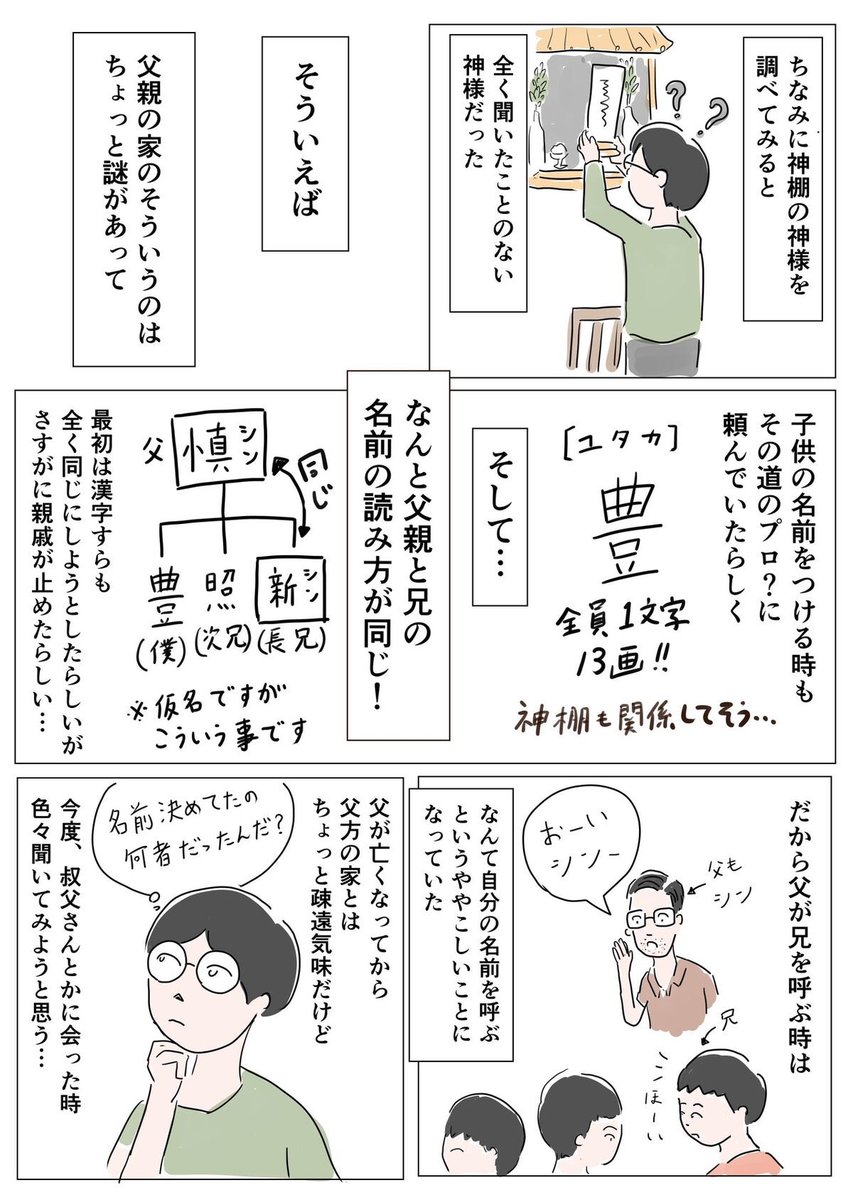 ちなみに神棚の神様を
調べてみると
？？
全く聞いたことのない
神様だった
そういえば
父親の家のそういうのは
ちょっと謎があって
子供の名前をつける時も
その道のプロ？に
頼んでいたらしく
[ユタカ]
豊
全員1文字
13画!!
神棚も関係してそう…
そして…
なんと父親と兄の
名前の読み方が同じ！
父
慎
シン
同じ
新
シン
(長兄)
照
(次兄)
豊
(僕)
※仮名ですが
こういう事です
最初は漢字すらも
全く同じにしようとしたらしいが
さすがに親戚が止めたらしい…
だから父が兄を呼ぶ時は
おーい
シンー
父も
シン
兄
なんて自分の名前を呼ぶ
というややこしいことに
なっていた
父が亡くなってから
父方の家とは
ちょっと疎遠気味だけど
名前決めてたの
何者だったんだ？
今度、叔父さんとかに会った時
色々聞いてみようと思う…